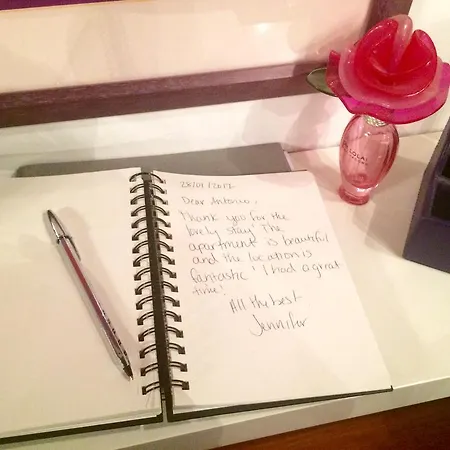 Dear Antonio,
Thank you for the
lovely stay! The
apartment is beautiful
and the location is
fantastic! I had a great
time!
All the best
Jennifer